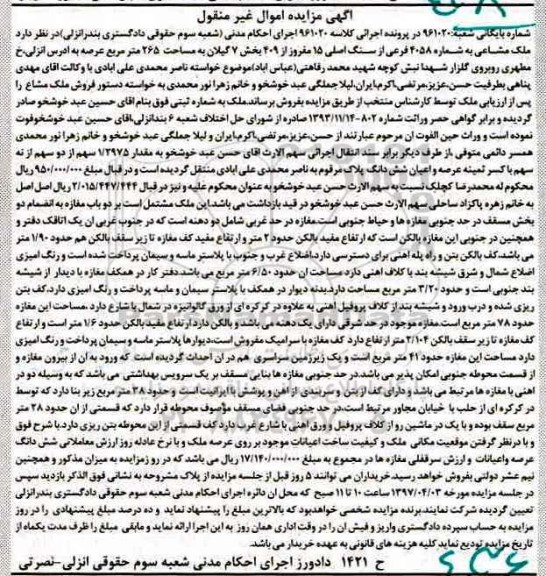 آگهی مزایده اموال غیر منقول
شماره بایگانی شعبه: ۹۶۱۰۲۰ در پرونده اجرائی کلاسه ۹۶۱۰۲۰ اجرای احکام مدنی (شعبه سوم حقوقی دادگستری بندرانزلی) در نظر دارد
ملک مشاعی به شماره ۴۰۵۸ فرعی از سنگ اصلی ۱۵ مفروز از ۴۰۹ بخش ۷ گیلان به مساحت ۲۶۵ متر مربع عرصه به ادرس انزلی،خ
مطهری روبروی گلزار شهدا نبش کوچه شهید محمد رفاهتی(عباس اباد)موضوع خواسته ناصر محمدی علی ابادی با وکالت اقای مهدی
پناهی بطرفیت حسن،عزیز،مرتضی،اکرم،ایران،لیلا جملگی عبد خوشخو و خانم زهرا نور محمدی به خواسته دستور فروش ملک مشاع را
پس از ارزیابی ملک توسط کارشناس منتخب از طریق مزایده بفروش برساند.ملک به شماره ثبتی فوق بنام اقای حسین عبد خوشخو صادر
گردیده و برابر گواهی حصر وراثت شماره ۸۰۲-۱۳۹۳/۱۱/۱۴ صادره از شورای حل اختلاف شعبه ۶ بندانزلی،اقای حسین عبد خوشخوفوت
نموده است و وراث حین الفوت ان مرحوم عبارتند از حسن،عزیز،مرتضی،اکرم،ایران و لیلا جملگی عبد خوشخو و خانم زهرا نور محمدی
همسر دائمی متوفی.از طرف دیگر برابر سند انتقال اجرائی سهم الارث اقای حسن عبد خوشخو به مقدار ۱/۲۹۷۵ سهم از دو سهم از نه
سهم با کسر ثمینه عرصه و اعیان شش دانگ پلاک مرقوم به ناصر محمدی علی ابادی منتقل گردیده است و در قبال مبلغ ۹۵۰/۰۰۰/۰۰۰ ریال
محکوم له محمدرضا کچلک نسبت به سهم الارث حسن عبد خوشخو به عنوان محکوم علیه و نیز در قبال ۲/۰۱۵/۴۴۷/۴۴۴ ریال اصل
به خانم زهره پاکزاد ساحلی سهم الارث حسن عبد خوشخو در قید بازداشت می باشد.این ملک مشتمل است بر دو باب مغازه به انضمام دو
بخش مسقف در حد جنوبی مغازه ها و حیاط جنوبی است.مغازه در حد غربی شامل دو دهنه است که در جنوب غربی ان یک اتاقک دفتر و
همچنین در جنوبی این مغازه بالکن است که ارتفاع مفید بالکن حدود ۲ متر و ارتفاع مفید کف مغازه تا زیر سقف بالکن هم حدود ۱/۹۰ متر
می باشد.کف بالکن بتن و راه پله اهنی برای دسترسی دارد.اضلاع غرب و جنوب با پلاستر ماسه و سیمان پرداخت شده است و رنگ امیزی
اضلاع شمال و شرق شیشه بند با کلاف اهنی دارد مساحت ان حدود ۶/۵۰ متر مربع می باشد.دفتر کار در همکف مغازه با دیدار از شیشه
بند جنوبی است و حدود ۳/۲۰ متر مربع است مساحت دارد.بدنه دیوار در همکف با پلاستر سیمان و ماسه پرداخت و رنگ امیزی دارد.کف بتن
ریزی شده و درب ورود و شیشه بند از کلاف پروفیل اهنی به علاوه در کرکره ای از ورق گالوانیزه در شمال با شارع دارد .مساحت این مغازه
حدود ۷۸ متر مربع است.مغازه موجود در حد شرقی دارای یک دهنه می باشد و بالکن دارد ارتفاع مفید بالکن حدود ۱/۶ متر است و ارتفاع
کف مغازه تا زیر سقف بالکن ۲/۱۰۴ متر ارتفاع دارد کف مغازه با سرامیک مفروش است،دیوارها پلاستر ماسه و سیمان پرداخت و رنگ امیزی
دارد مساحت این مغازه حدود ۴۱ متر مربع است و یک زیرزمین سراسری هم در ان احداث گردیده است که ورود به ان از بیرون مغازه و
از قسمت محوطه جنوبی امکان پذیر می باشد.در حد جنوبی مغازه ها بنایی مسقف بر یک سرویس بهداشتی می باشد که به وسیله دو در
اهنی با مغازه ها مرتبط می باشد و دارای کف از بتن و سربندی از اهن و پوشش با ایرانیت است و حدود ۳۸ متر مربع زیر بنا دارد که توسط
در کرکره ای از حلب با خیابان مجاور مرتبط است.در حد جنوبی فضای مسقف مؤصوف محوطه قرار دارد که قسمتی از ان حدود ۲۸ متر
مربع سقف بوده و با یک در ماشین رو از کلاف پروفیل و ورق اهنی با شارع درب دارد کف قسمتی از این محوطه بتن ریزی دارد.با شرح فوق
و با درنظر گرفتن موقعیت مکانی ملک و کیفیت ساخت اعیانات موجود بر روی عرصه ملک و با نرخ عادله روز ارزش معاملاتی شش دانگ
عرصه واعیانات و ارزش سرقفلی مغازه ها در مجموع به مبلغ ۱۷/۱۴۰/۰۰۰/۰۰۰ ریال می باشد که در روز مزایده به میزان مذکور و همچنین
نیم عشر دولتی بفروش خواهد رسید.خریداران می توانند ۵ روز قبل از جلسه مزایده از پلاک مشروحه به نشانی فوق الذکر بازدید سپس
در جلسه مزایده مورخه ۱۳۹۷/۰۴/۰۳ ساعت ۱۰ تا ۱۱ صبح که محل ان دائره اجرای احکام مدنی شعبه سوم حقوقی دادگستری بندرانزلی
تعیین گردیده شرکت نمایند.برنده مزایده شخصی خواهدبود که بالاترین مبلغ را پیشنهاد نماید و ده درصد مبلغ پیشنهادی را در روز
مزایده به حساب سپرده دادگستری واریز و فیش ان را در وقت اداری همان روز به این اجرا ارائه نماید و مابقی مبلغ را ظرف مدت یکماه از
تاریخ مزایده تودیع نماید کلیه هزینه های قانونی به عهده خریدار می باشد.
ح ۱۴۲۱ دادورز اجرای احکام مدنی شعبه سوم حقوقی انزلی-نصرتی